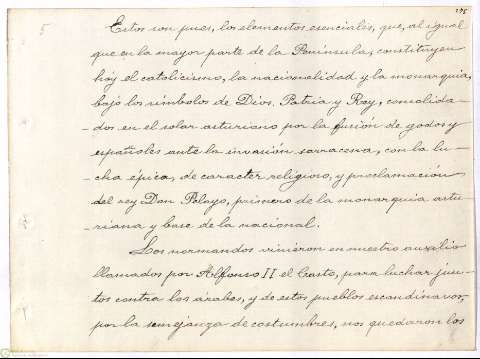 275
5
Estos son pues, los elementos esenciales, que, al igual
que en la mayor parte de la Península, constituyen
hoy el catolicismo, la nacionalidad y la monarquia,
bajo los símbolos de Dios, Patria y Rey, consolida-
dos en el solar asturiano por la fusión de godos y
españoles ante la invasión sarracena, con la lu-
cha épica, de caracter religioso, y proclamación
del rey Don Pelayo, primero de la monarquia astu-
riana y base de la nacional.
Los normandos vinieron en nuestro auxilio
llamados por Alfonso II el Casto, para luchar jun-
tos contra los árabes, y de estos pueblos escandinavos,
por la semejanza de costumbres, nos quedaron los